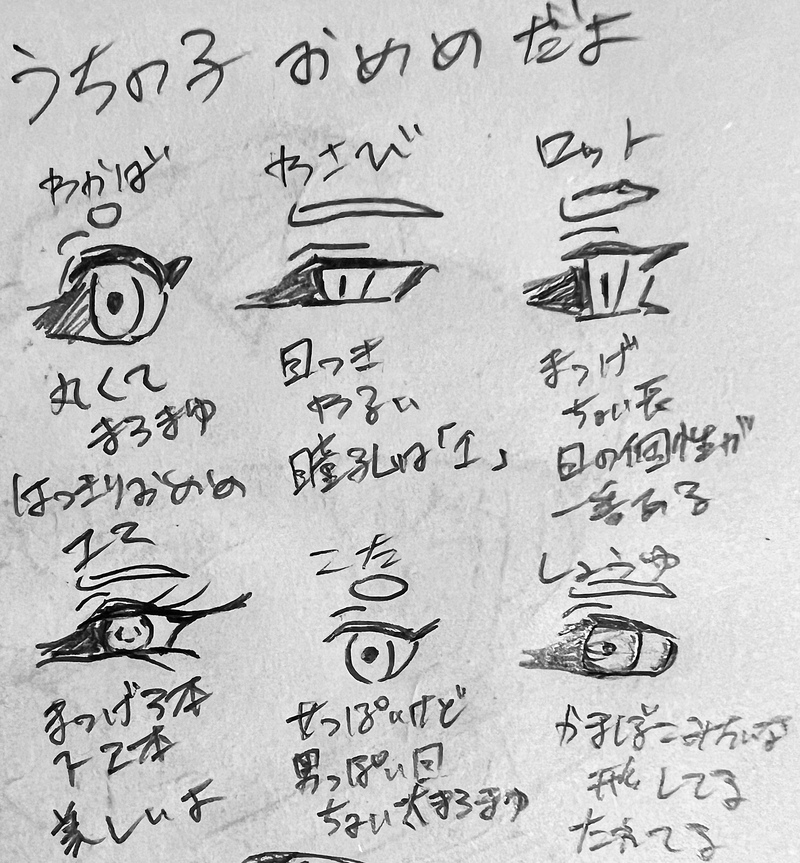 うちの子 おめめ だよ
わかば
わさび
ロット
丸くて
まろまゆ
はっきりおめめ
目つき
わるい
瞳孔は「I」
まつげ
ちょい長
目の個性が
一番ある
こた
しょうゆ
まつげ3本
下2本
美しいよ
せっぽいけど
男っぽい目
ちょい太まろまゆ
かまぼこみたいな
形してる
たれてる